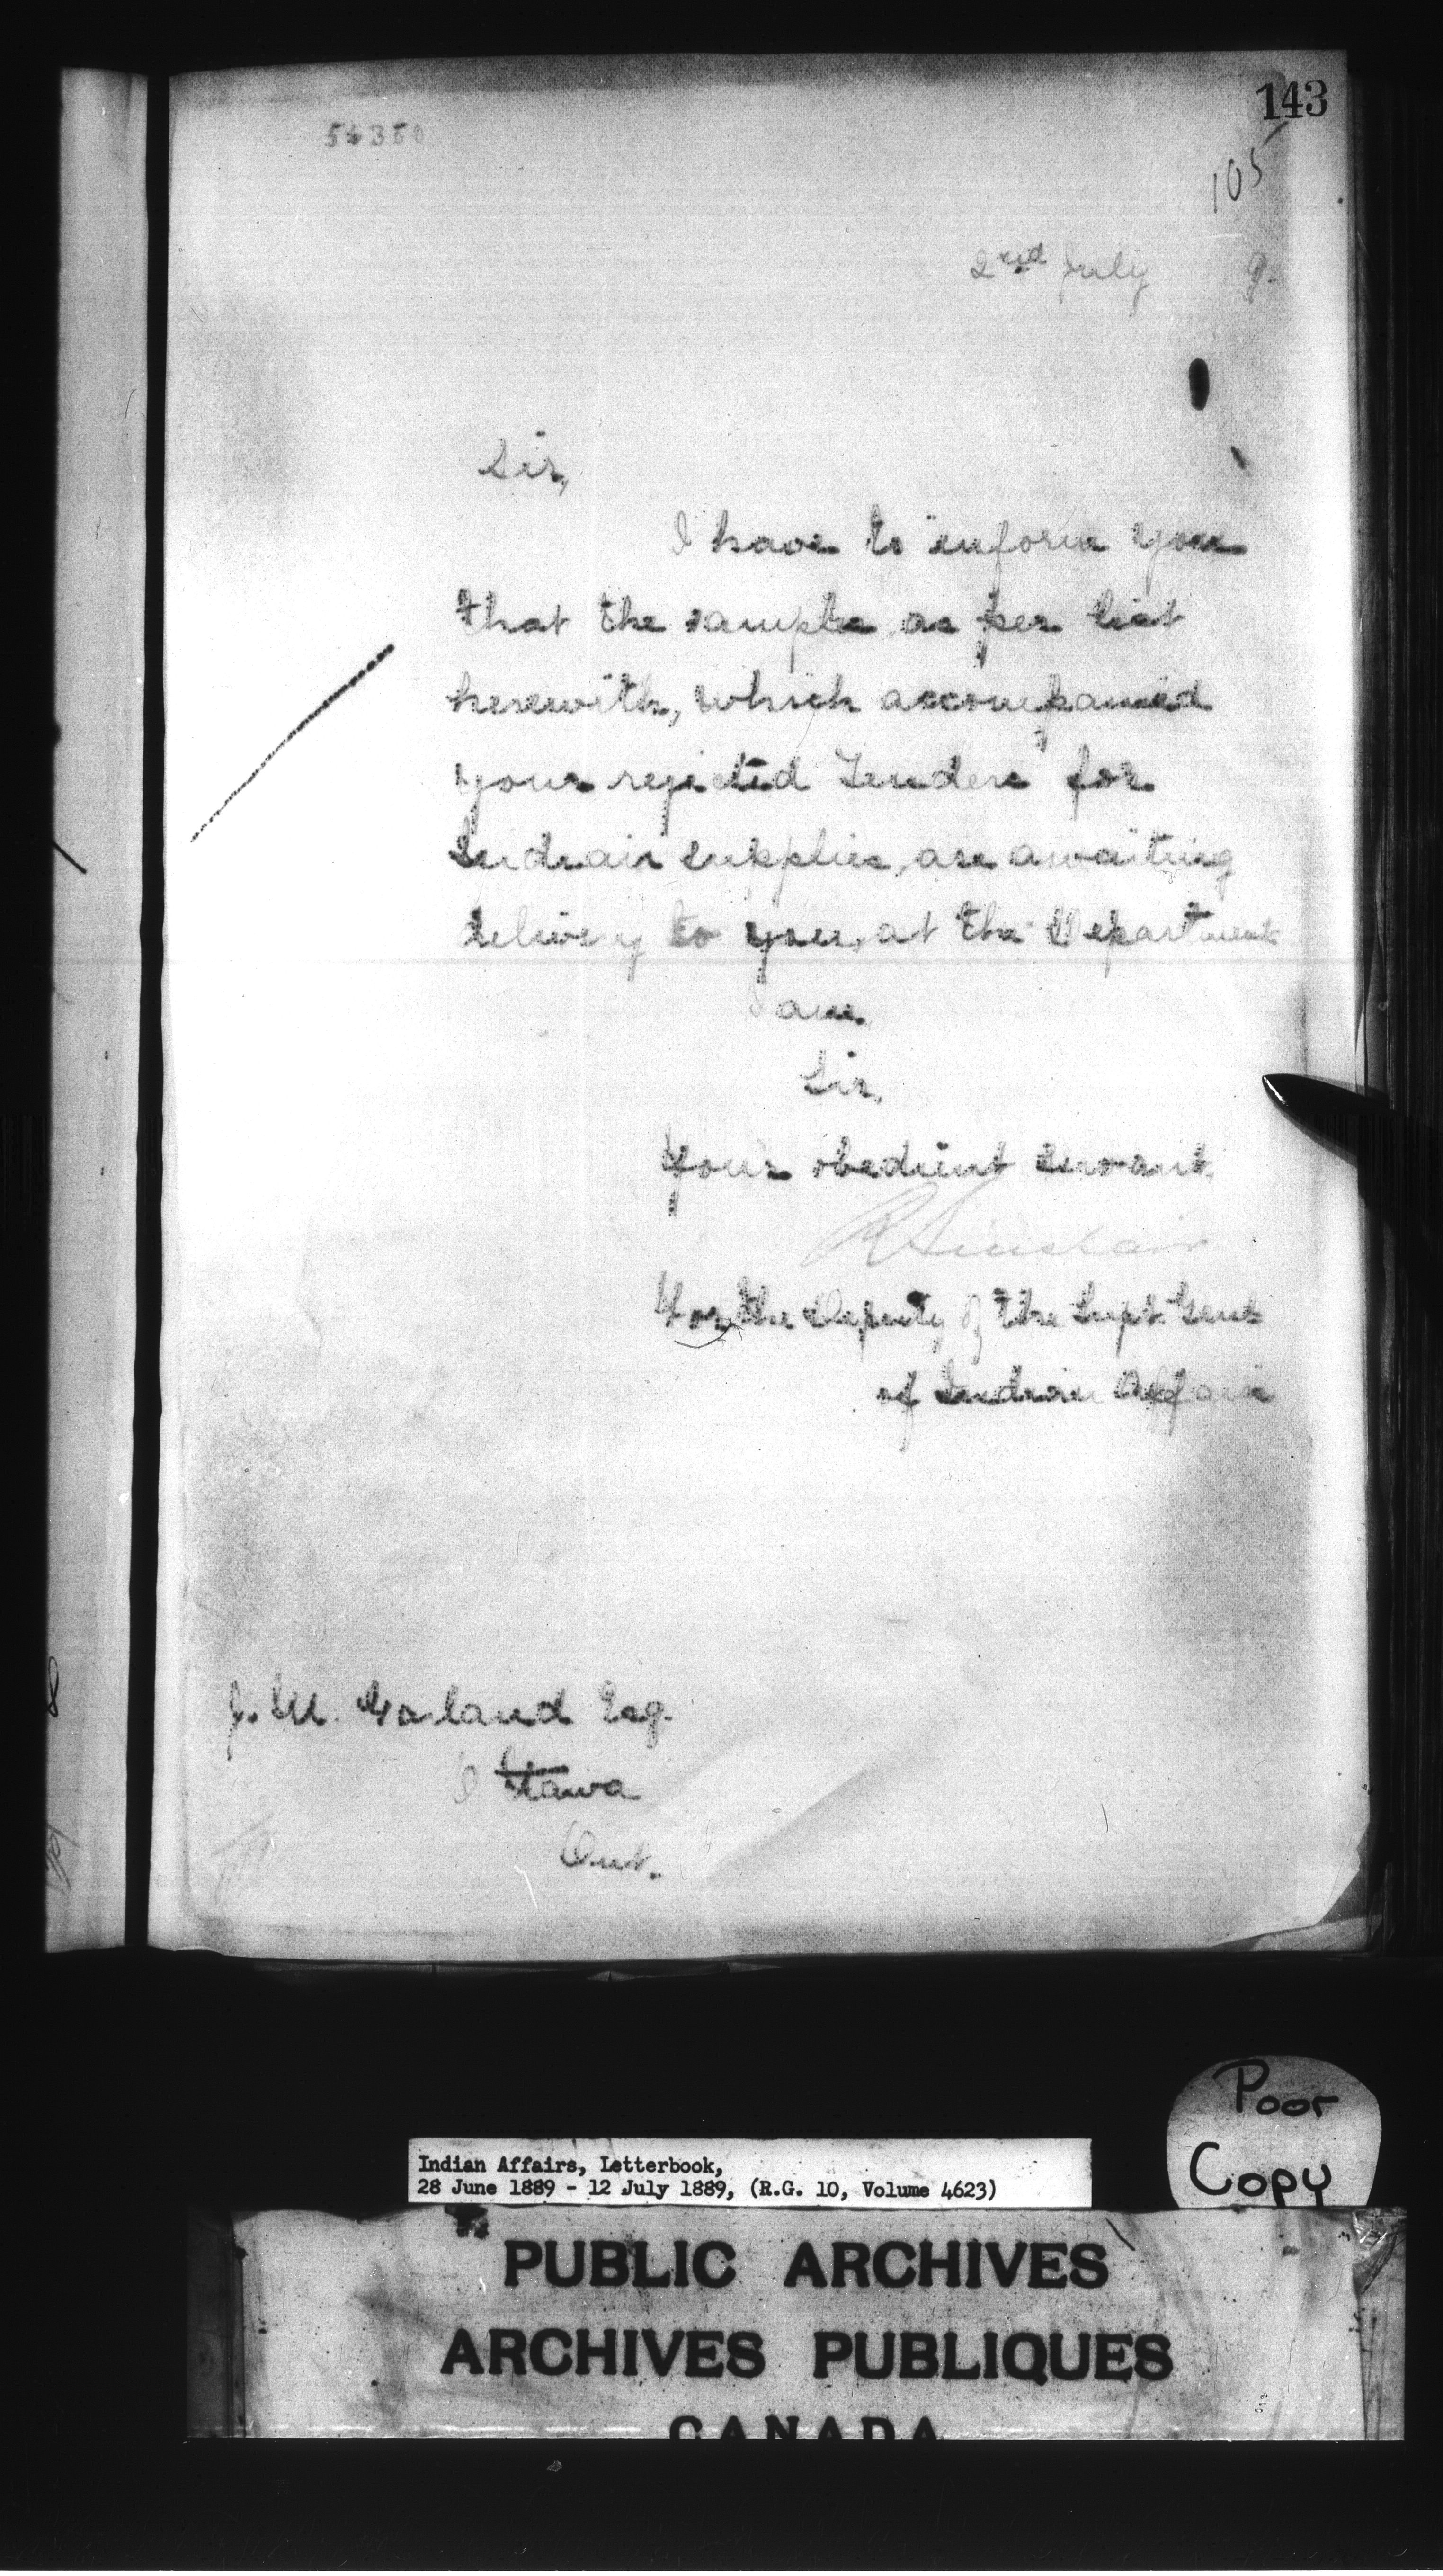 143
105
2nd July 9.
Sir,
I have to inform you
that the samples as per list
herewith, which accompanied
your rejected Tenders for
Indian supplies, are awaiting
delivery to you, at the Department
I am,
Sir,
Your obedient servant,
R Sinclair
For the Deputy of the Supt. Genl
of Indian Affairs
J. M. Garland Esq.
Ottawa
Ont.
Poor
Copy
Indian Affairs, Letterbook,
28 June 1889 - 12 July 1889, (R.G. 10, Volume 4623)
PUBLIC ARCHIVES
ARCHIVES PUBLIQUES
CANADA